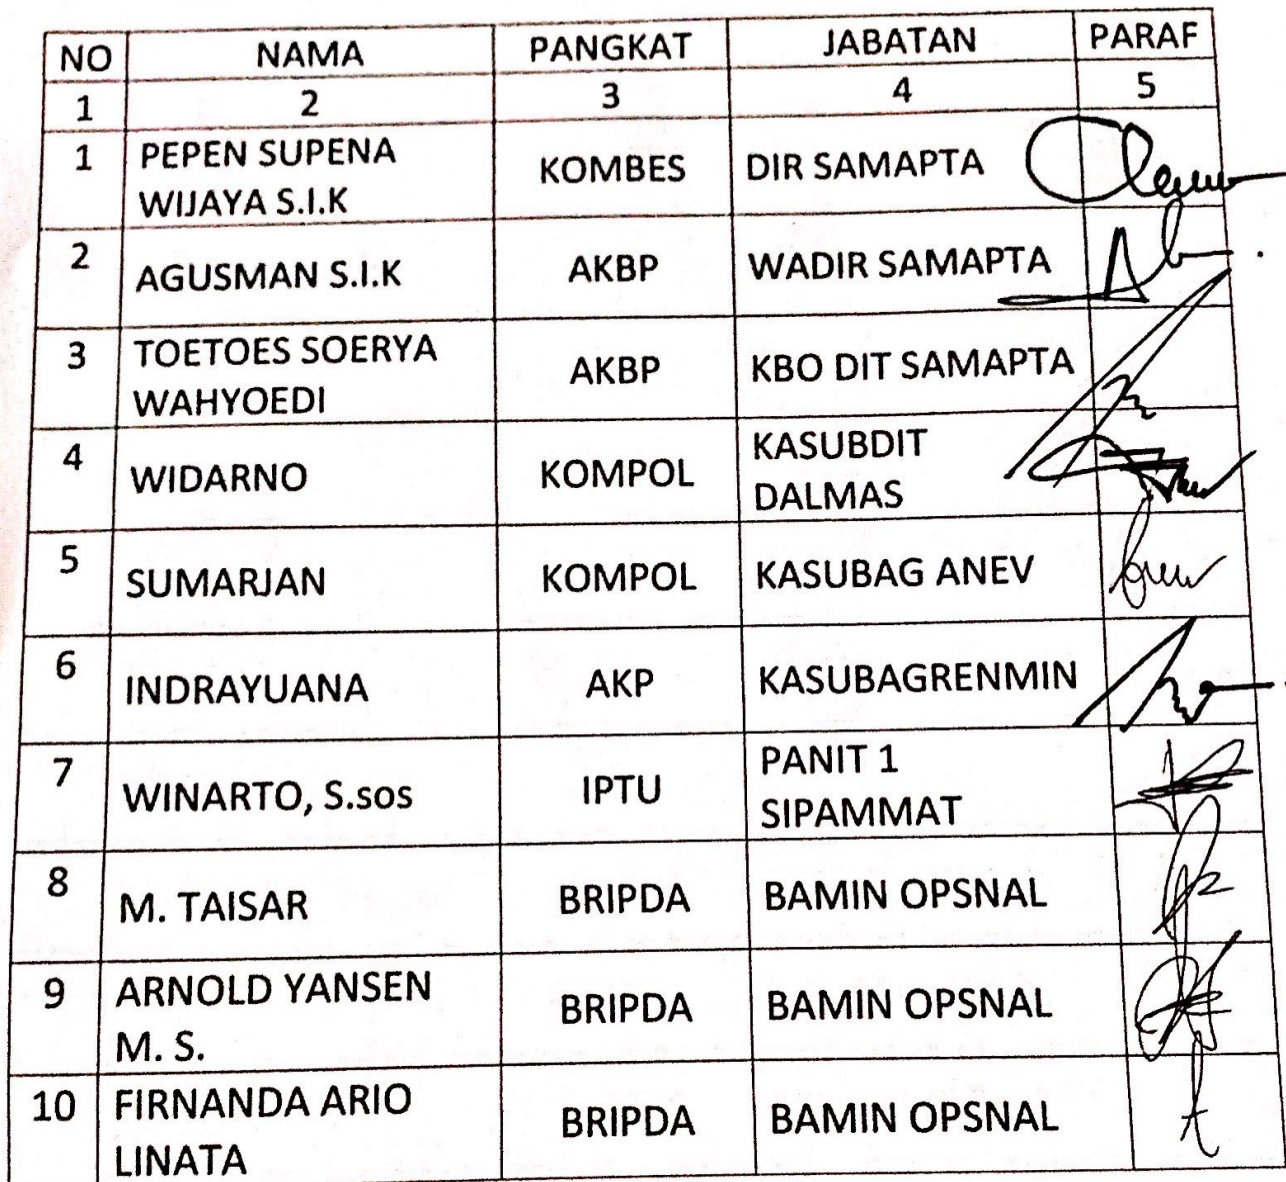 NO NAMA PANGKAT JABATAN PARAF
1 2 3 4 5
1 PEPEN SUPENA WIJAYA S.I.K KOMBES DIR SAMAPTA
2 AGUSMAN S.I.K AKBP WADIR SAMAPTA
3 TOETOES SOERYA WAHYOEDI AKBP KBO DIT SAMAPTA
4 WIDARNO KOMPOL KASUBDIT DALMAS
5 SUMARJAN KOMPOL KASUBAG ANEV
6 INDRAYUANA AKP KASUBAGRENMIN
7 WINARTO, S.sos IPTU PANIT 1 SIPAMMAT
8 M. TAISAR BRIPDA BAMIN OPSNAL
9 ARNOLD YANSEN M. S. BRIPDA BAMIN OPSNAL
10 FIRNANDA ARIO LINATA BRIPDA BAMIN OPSNAL